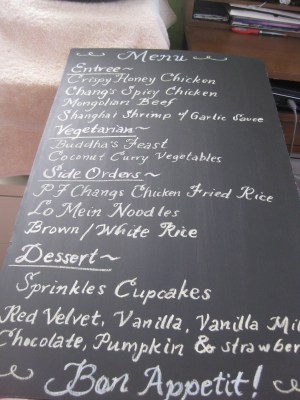 ~ Menu ~
Entree~
Crispy Honey Chicken
Chang's Spicy Chicken
Mongolian Beef
Shanghai Shrimp w/ Garlic Sauce
Vegetarian~
Buddha's Feast
Coconut Curry Vegetables
Side Orders~
PF Changs Chicken Fried Rice
Lo Mein Noodles
Brown/White Rice
Dessert~
Sprinkles Cupcakes
Red Velvet, Vanilla, Vanilla Mil
Chocolate, Pumpkin & Strawber
~ Bon Appetit! ~